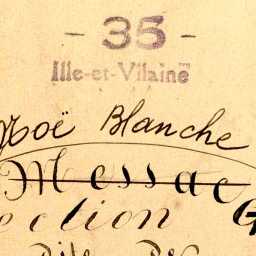 - 35 -
Ille-et-Vilaine
Noë Blanche
Messac
ection G